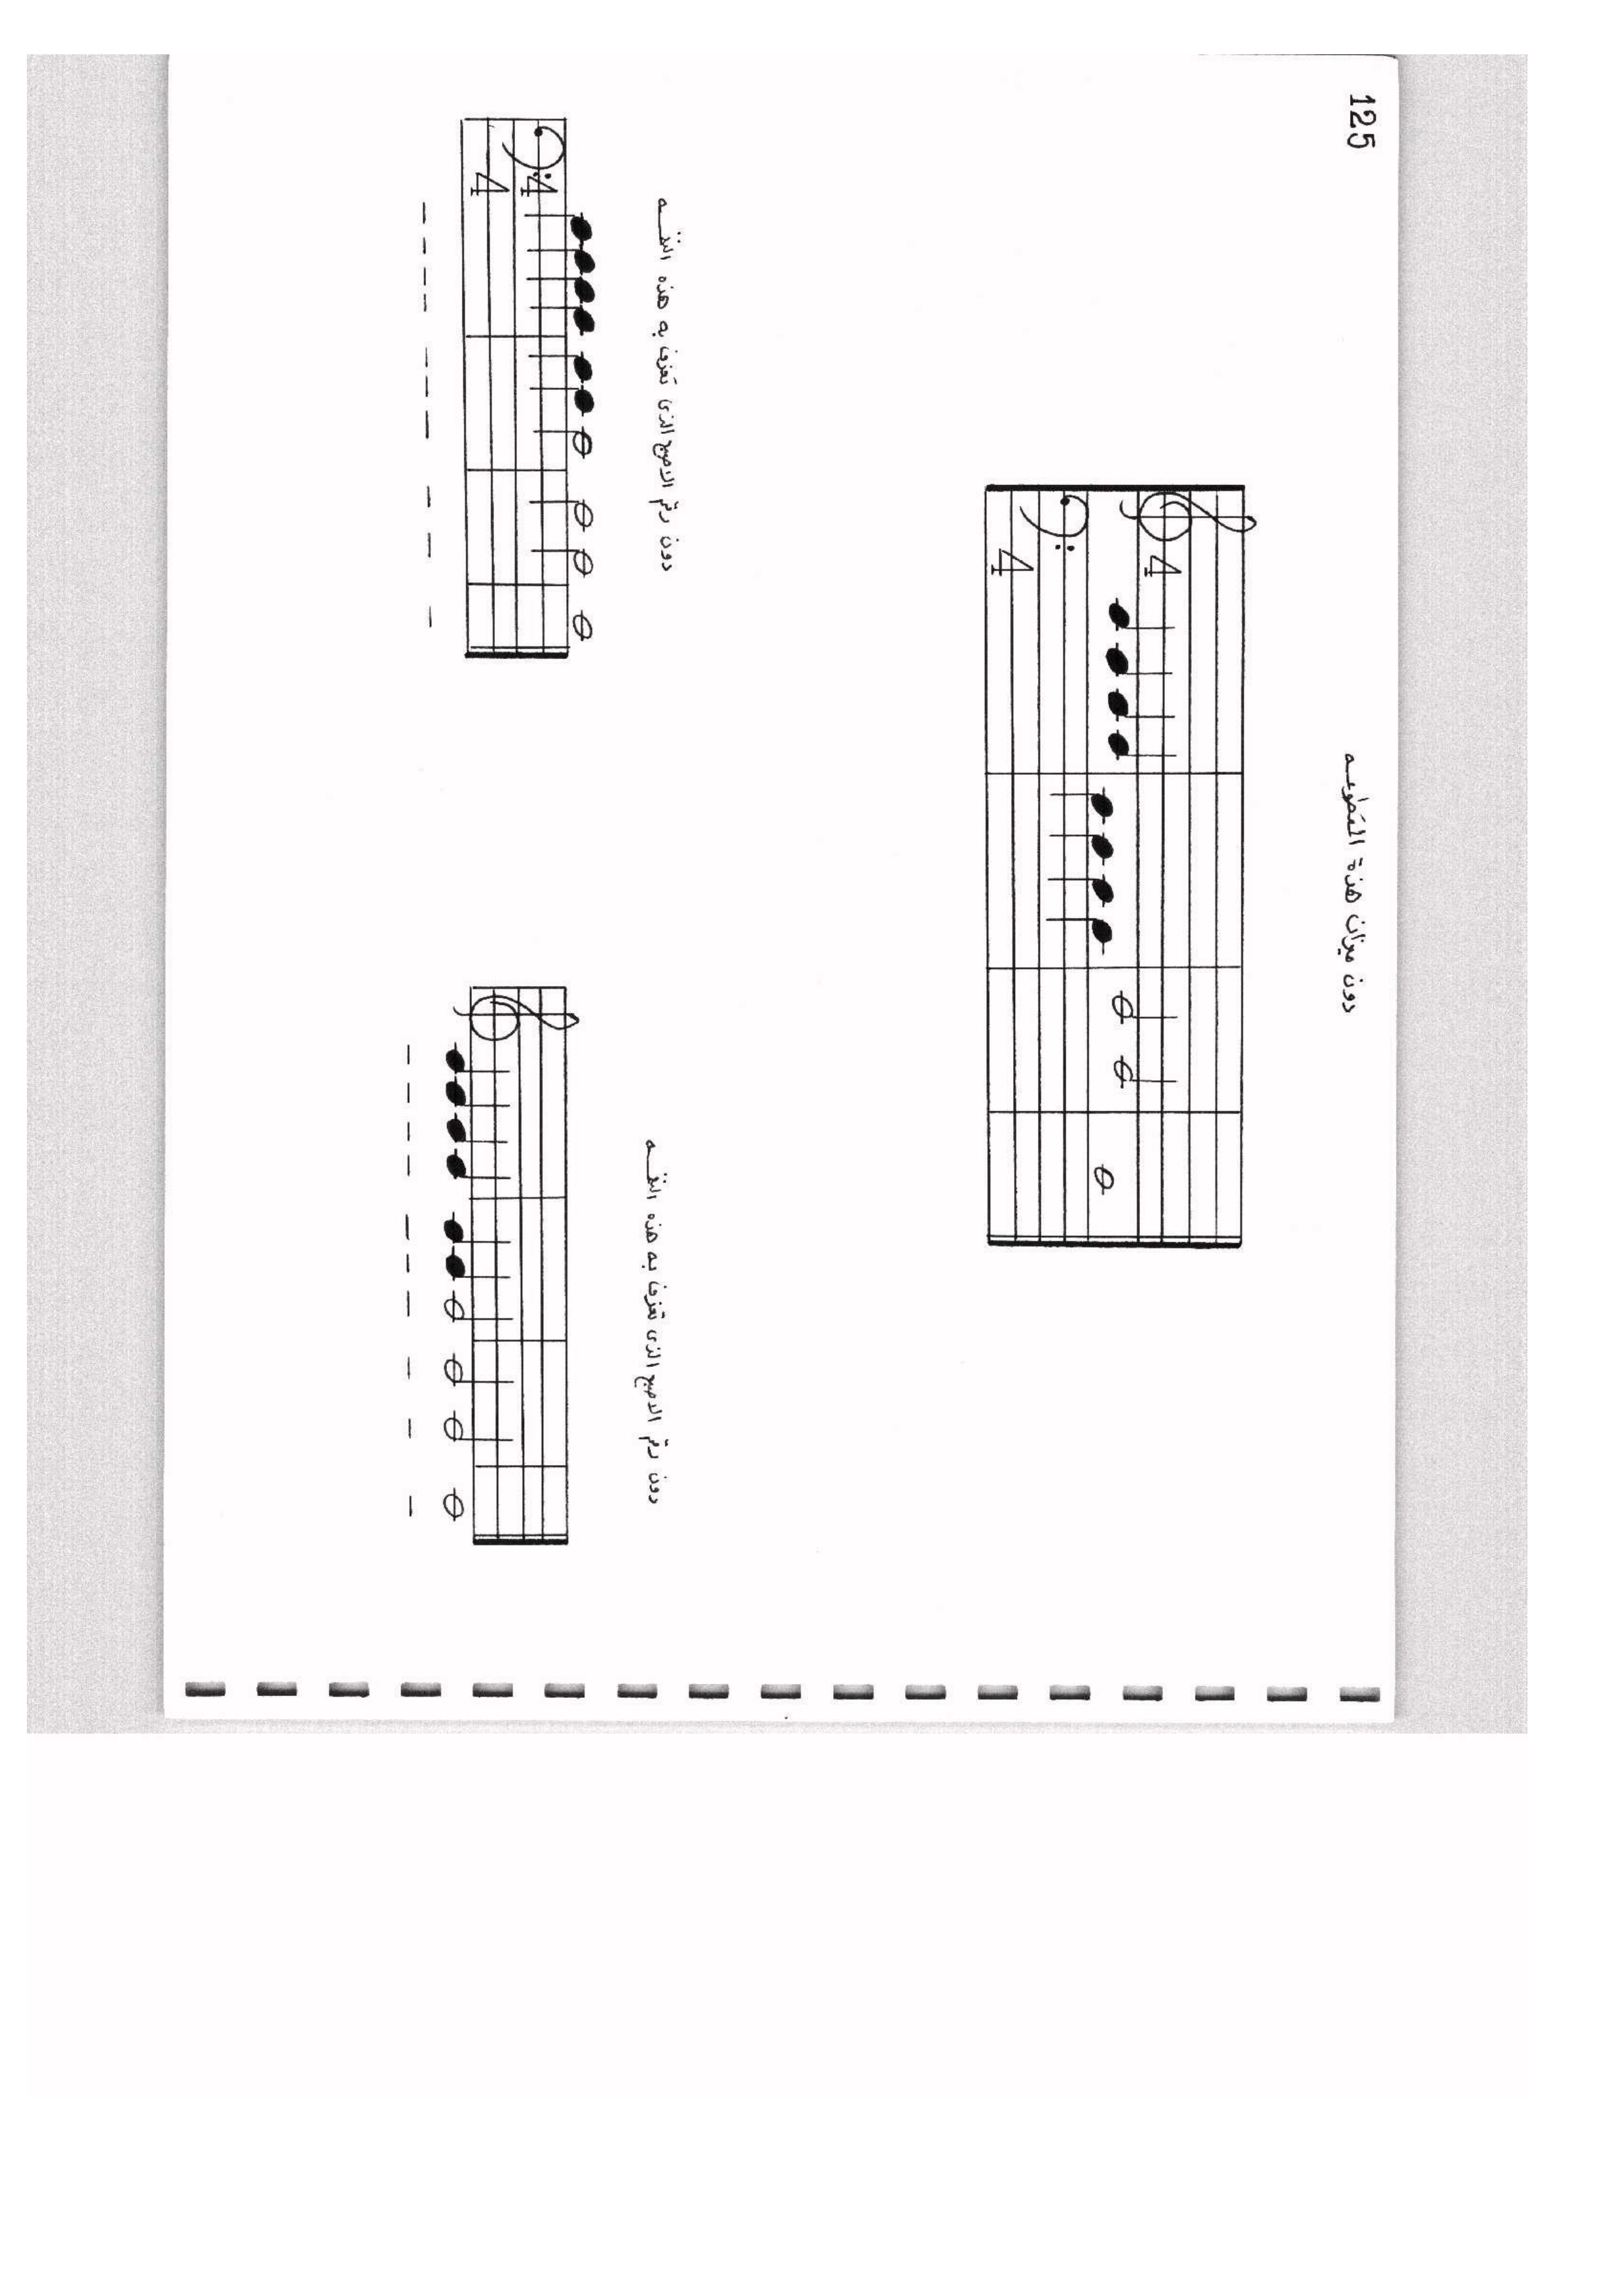 125
دون ميزان هذة المقطوعه
4
4
دون رقم الاصبع الذى تعزف به هذه النغمه
4
4
دون رقم الاصبع الذى تعزف به هذه النغمه